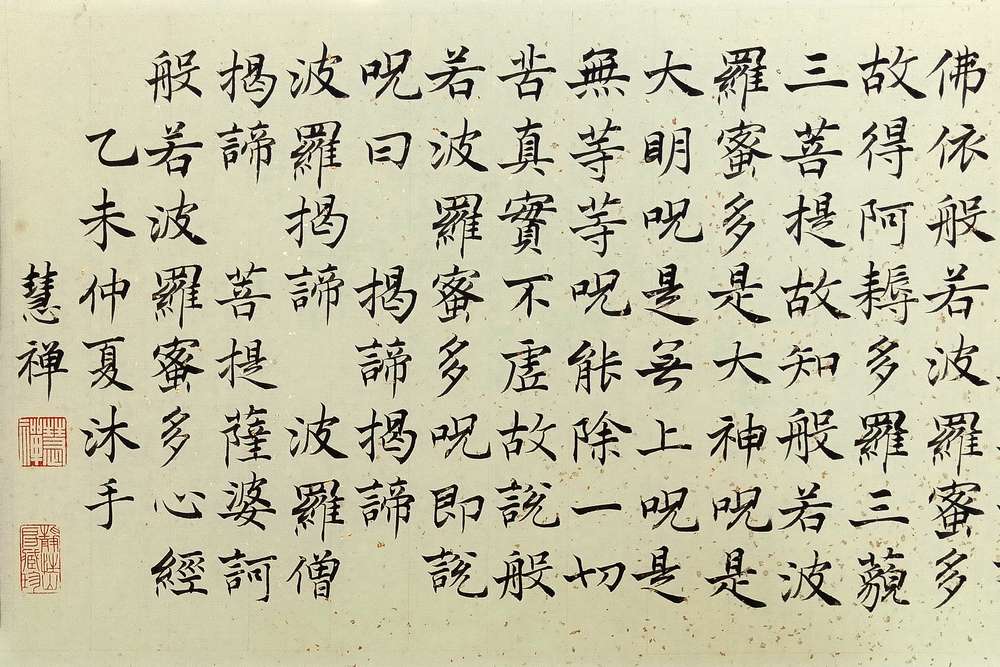 佛依般若波羅蜜多
故得阿耨多羅三藐
三菩提故知般若波
羅蜜多是大神呪是
大明呪是无上呪是
無等等呪能除一切
苦真實不虛故說般
若波羅蜜多呪即說
呪曰 揭諦揭諦
波羅揭諦 波羅僧
揭諦 菩提薩婆訶
般若波羅蜜多心經
乙未仲夏沐手
慧禅